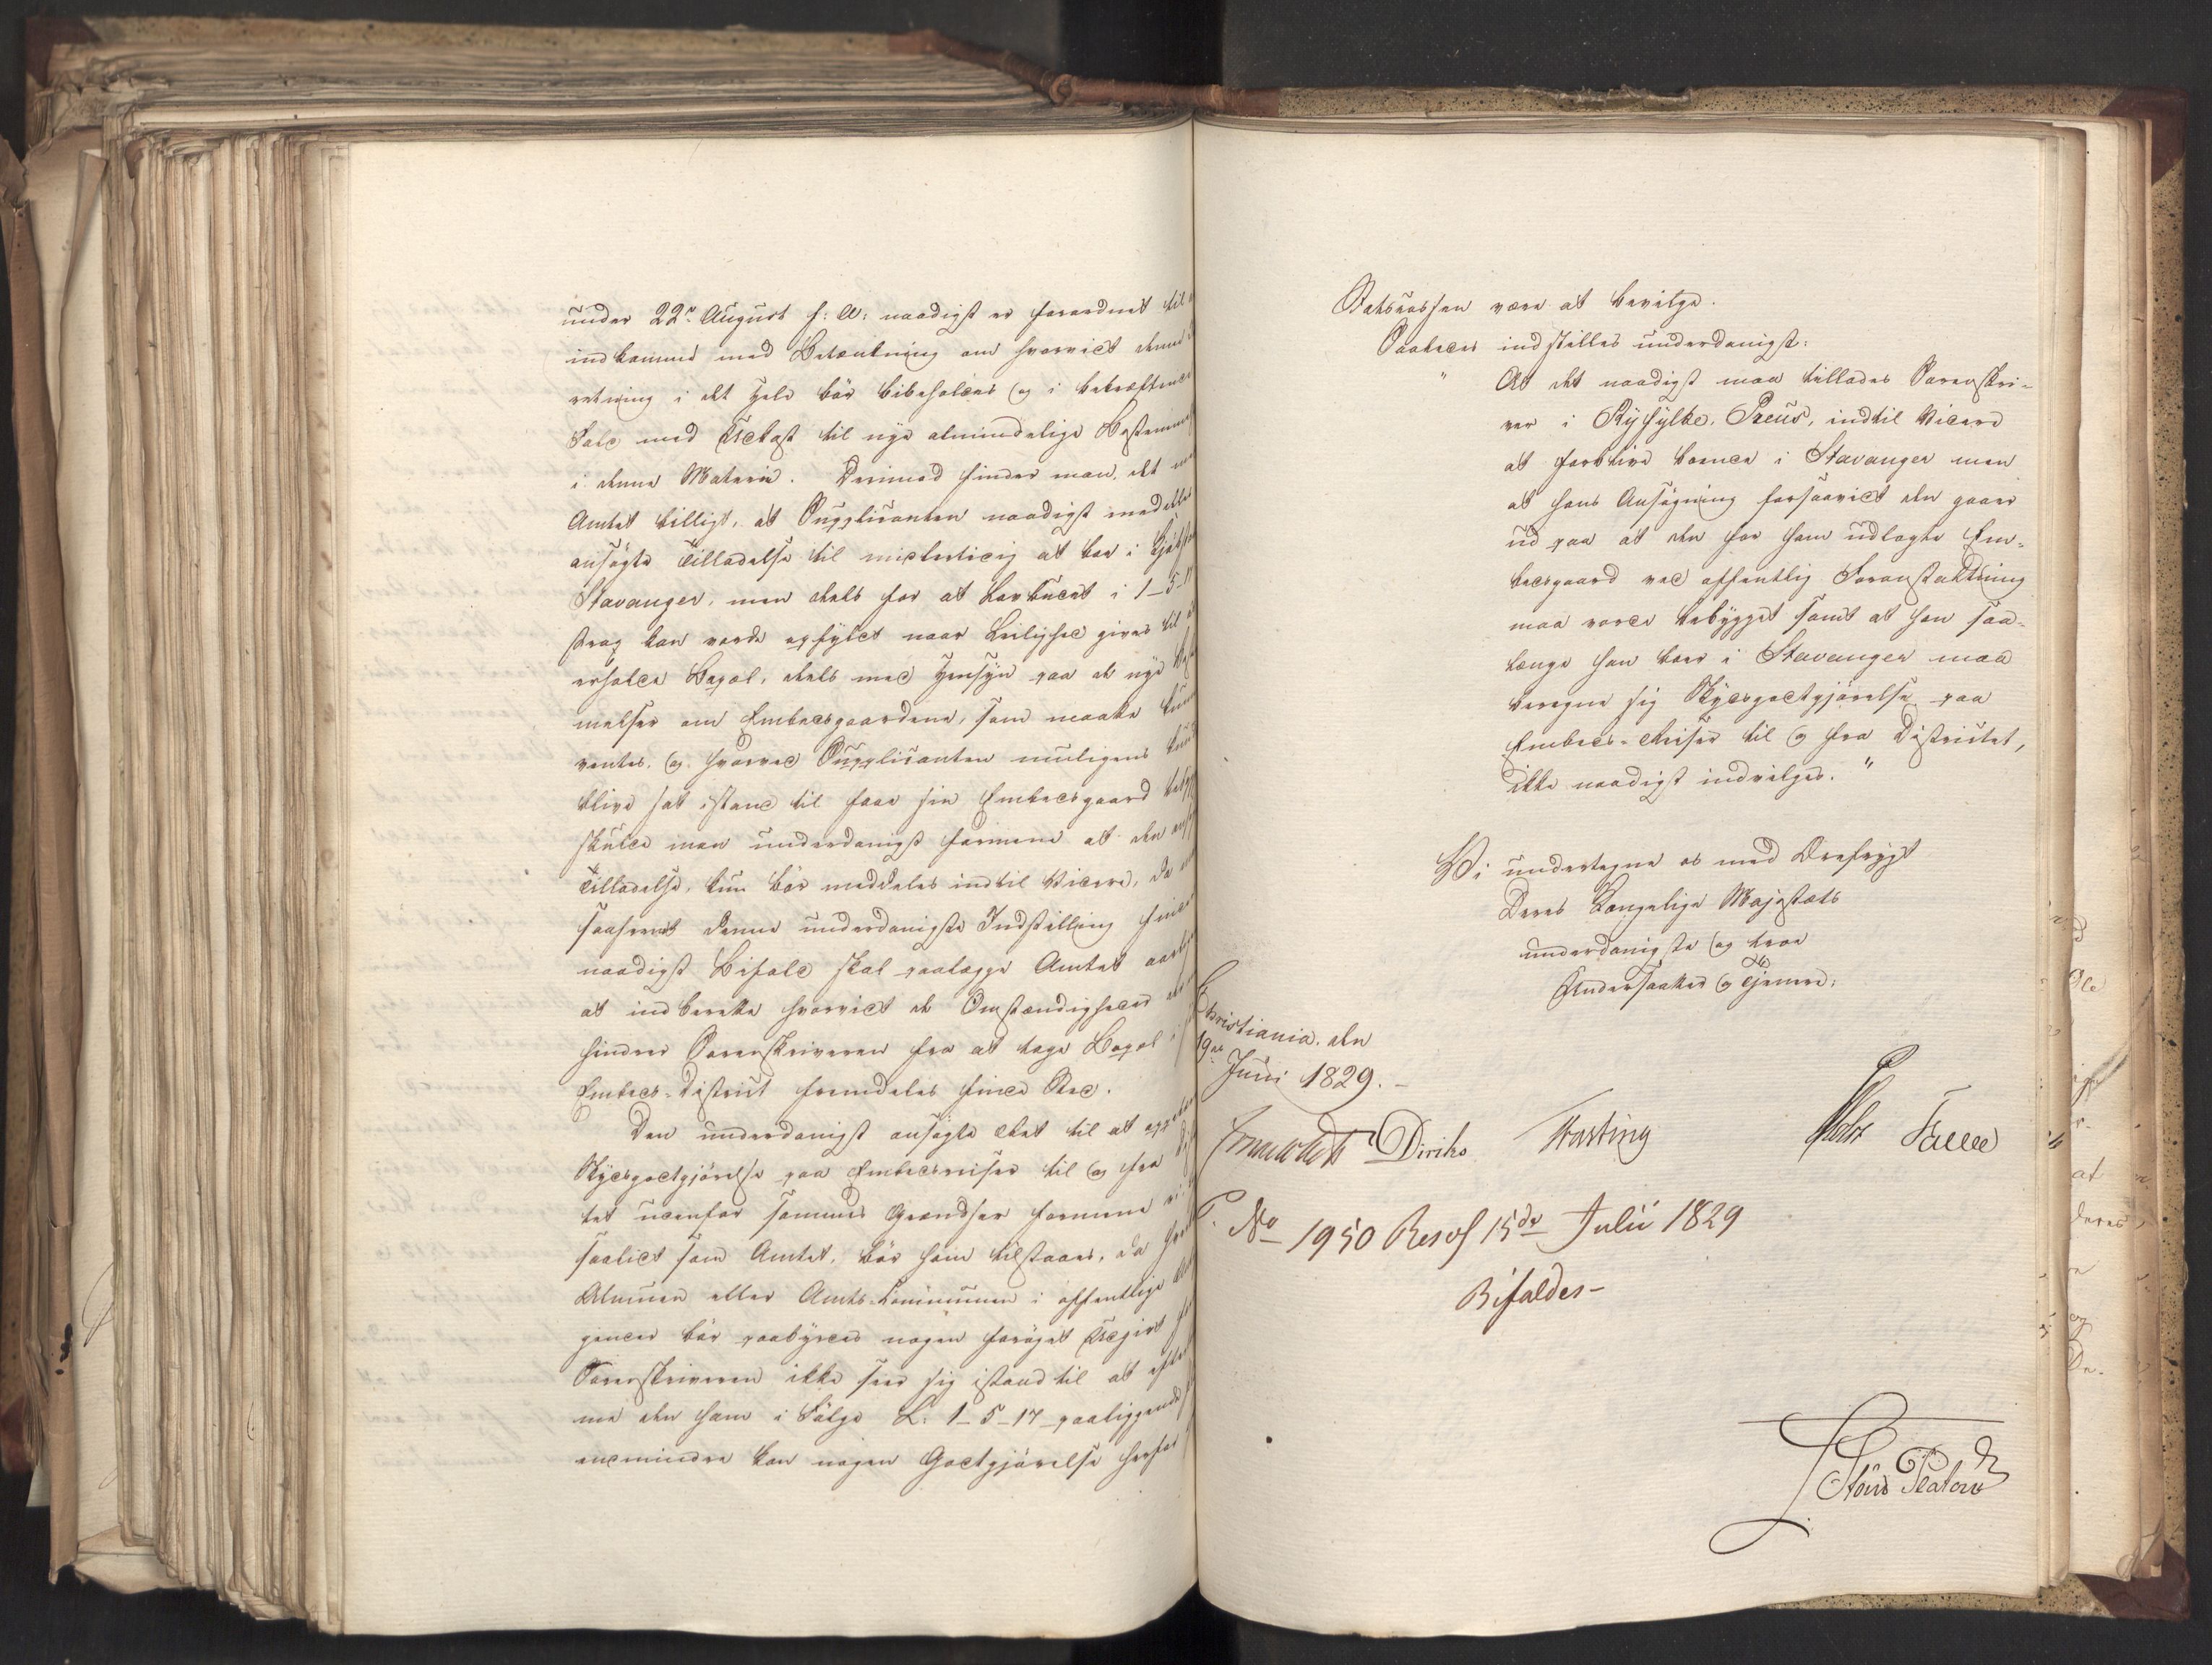 under 22de August f: A: naadigst er forordnet til
indkomme med Betænkning om hvorvidt denne
retning i det Hele bør bibeholdes og i bekræftende
Fald med Udkast til nye almindelige Bestemmel
i denne Materie. Derimod finder man, det
Amtet billigt, at Supplicanten naadigst meddeles
ansøgte Tilladelse til midlertidig at boe i
Stavanger, men deels for at Lovbudet i 1-5-17
strax kan vorde opfyldt naar Leilighed gives til
erholde Bopæl, deels med Hensyn paa de nye
melser om Embedsgaardene, som maatte
ventes, og hvorved Supplicanten muligens
blive sat istand til faae sin Embedsgaard
skulde man underdanigst formene at den
Tilladelse, kun bør meddeles indtil Videre, da
saafremt denne underdanigste Indstilling
naadigst Bifald skal paalægge Amtet
at indberette hvorvidt de Omstændigheder
hindrer Sorenskriveren fra at tage Bopæl i
Embeds-District fremdeles finde Sted.
Den underdanigst ansøgte Ret til at
Skydsgodtgjørelse paa Embedsreiser til og fra
tet udenfor sammes Grændser formene vi
saalidt som Amtet, bør ham tilstaaes, da
Almuen eller Amts-Communen i offentlige
gender bør paabyrdes nogen forøget Udgivt
Sorenskriveren ikke seer sig istand til at
me den ham i Følge L: 1-5-17 paaliggende
endmindre kan nogen Godtgjørelse herfor
Statscassen være at bevilge.
Saaledes indstilles underdanigst:
"At det naadigst maa tillades Sorenskri-
ver i Ryfylke, Preus, indtil Videre
at forblive boende i Stavanger men
at hans Ansøgning forsaavidt den gaaer
ud paa at den for ham udlagte Em-
bedsgaard ved offentlig Foranstaltning
maa vorde bebygget samt at han saa-
længe han boer i Stavanger maa
beregne sig Skydsgodtgjørelse paa
Embeds-Reiser til og fra Districtet,
ikke naadigst indvilges."
Vi undertegne os med Ærefrygt
Deres Kongelige Majestæts
underdanigste og troe
Undersaatter og Tjenere;
Christiania, den
19de Juni 1829.-
Diriks
No 1950 Resol 15de Julii 1829
Bifaldes-